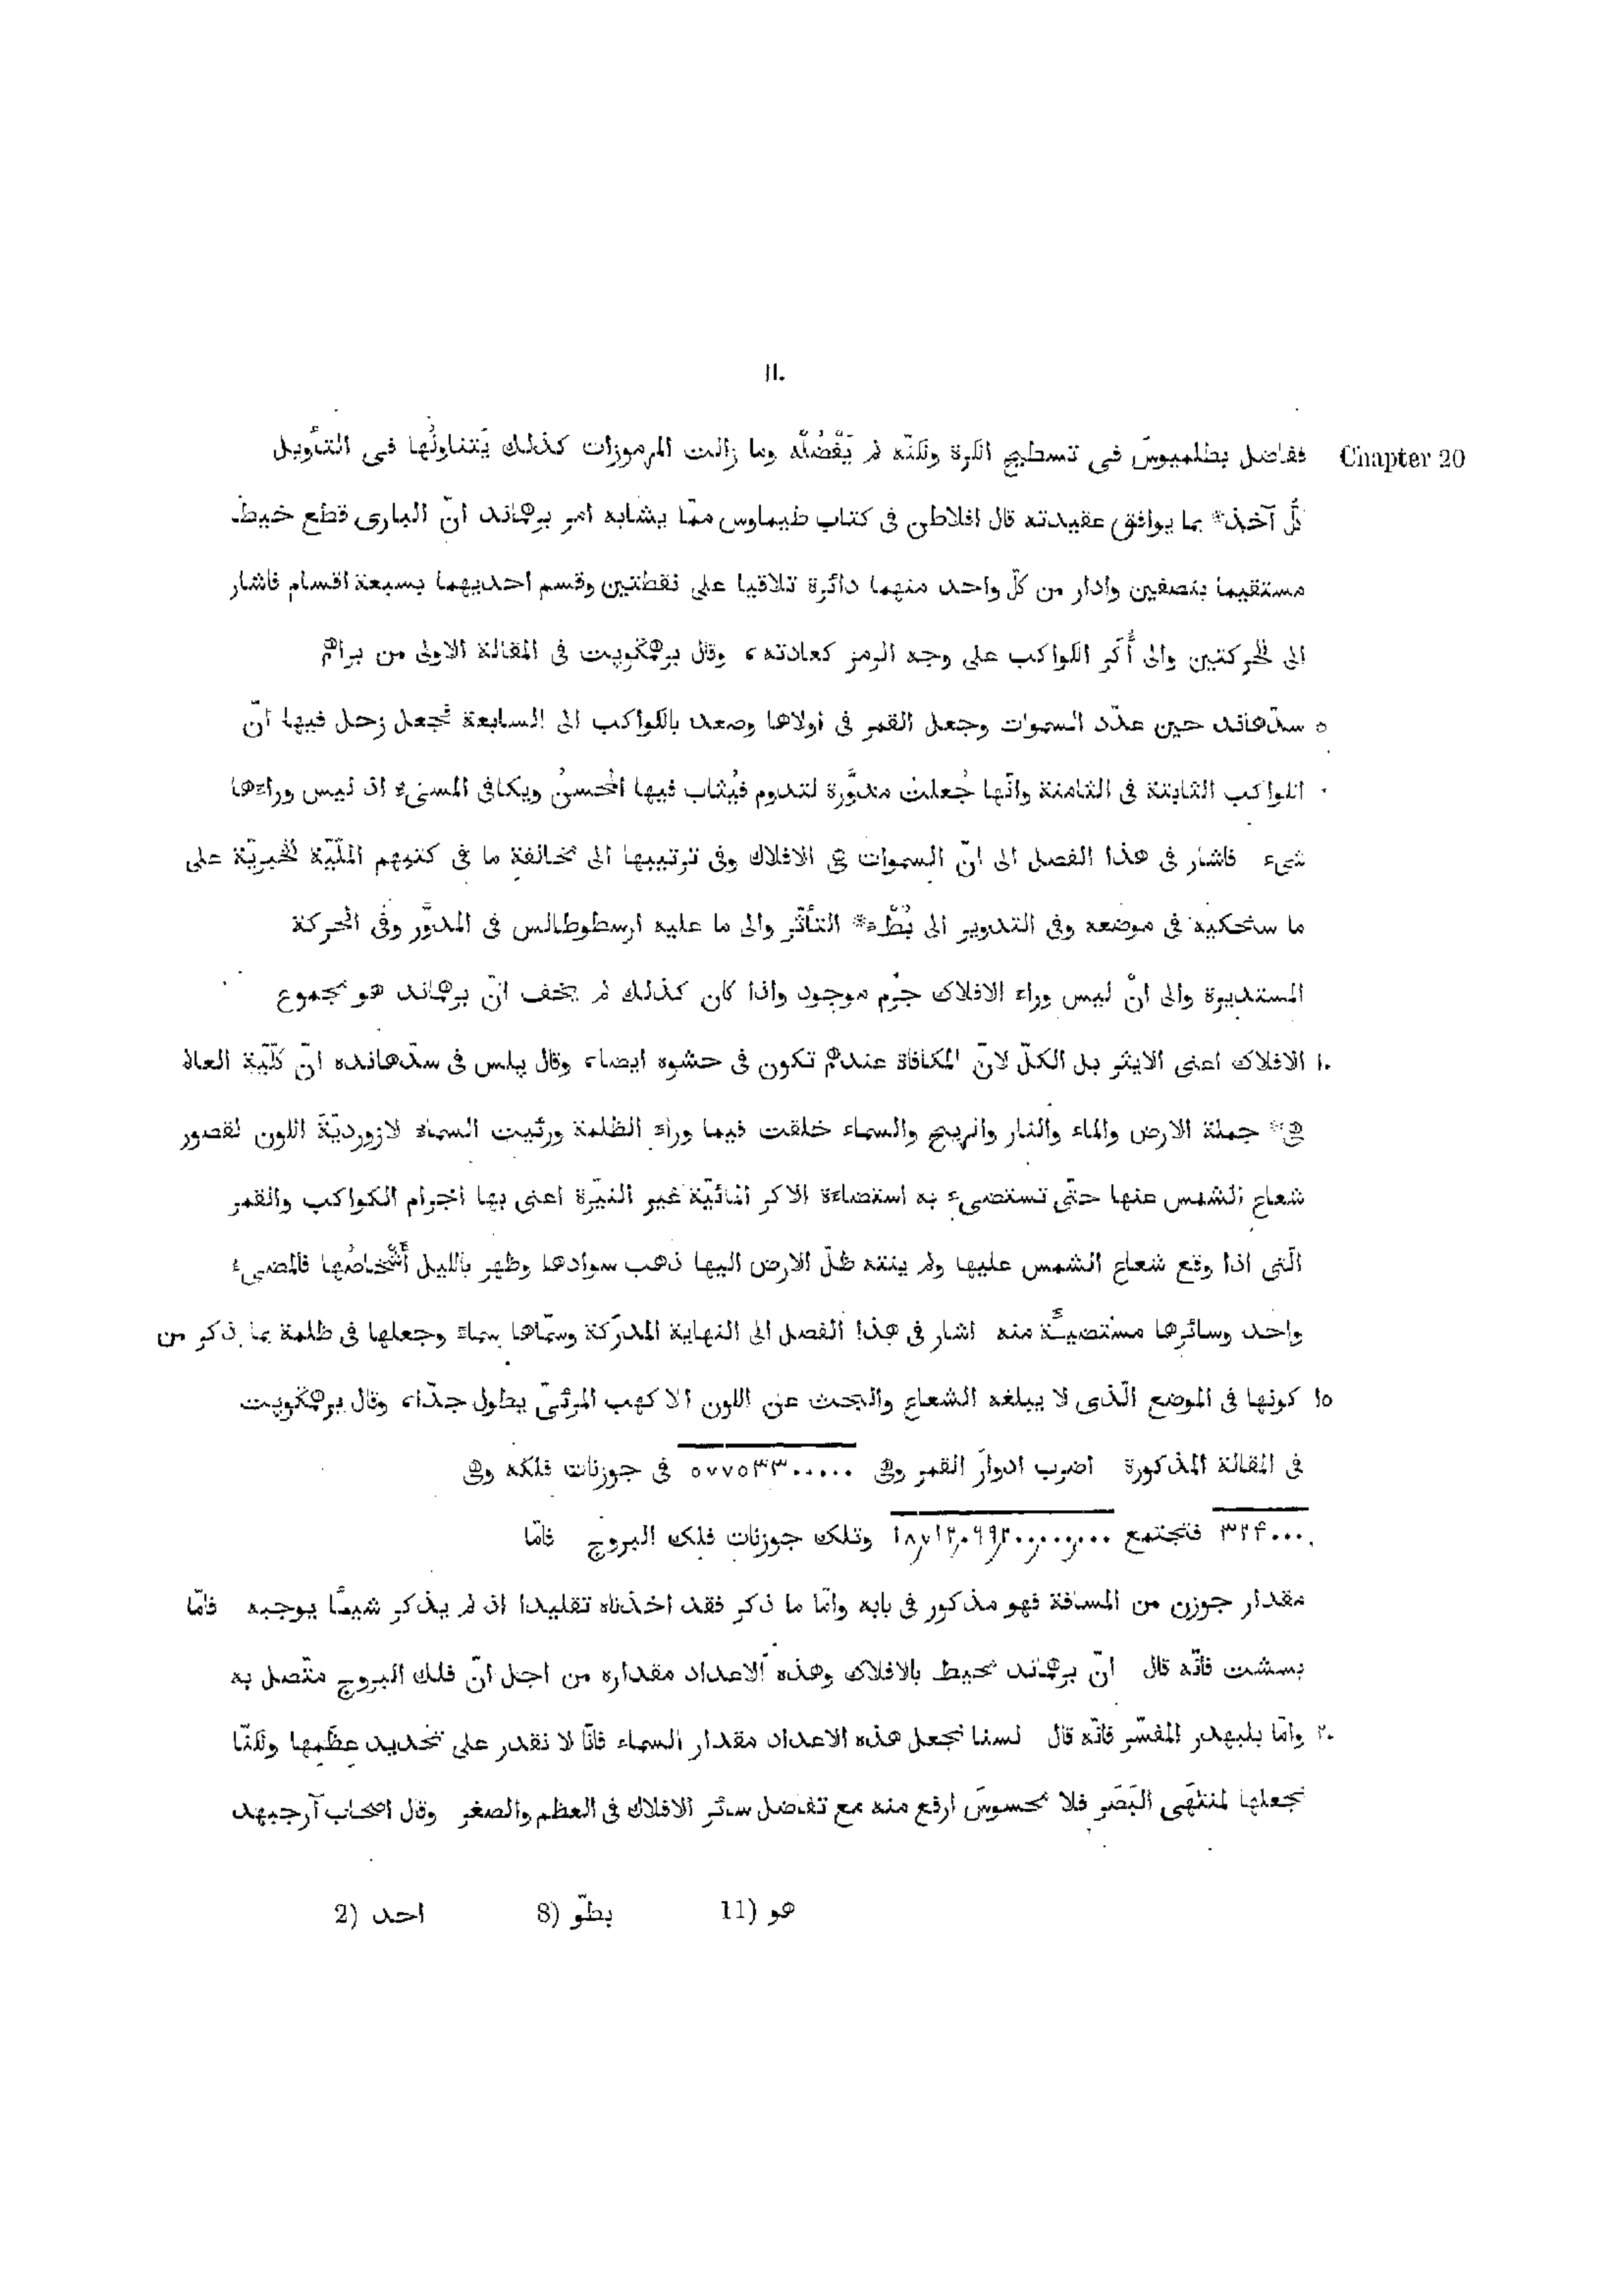 ١١٠
Chapter 20 ففاضل بطلميوسَ فى تسطيح الكرة ولكنّه لم يَفْضُلْه وما زالت المرموزات كذلك يَتناولُها فى التأويل
كلُّ آخذ* بما يوافق عقيدته قال افلاطن فى كتاب طيماوس ممّا يشابه امر برهماند انّ البارى قطع خيطا
مستقيما بنصفين وادار من كلّ واحد منهما دائرة تلاقيا على نقطتين وقسم احديهما بسبعة اقسام فاشار
الى الحركتين والى أُكَر الكواكب على وجه الرمز كعادته، وقال برهمگوپت فى المقالة الاولى من براهم
٥ سدّهاند حين عدّد السموات وجعل القمر فى اولاها وصعد بالكواكب الى السابعة فجعل زحل فيها انّ
الكواكب الثابتة فى الثامنة وانّها جُعلتْ مدوَّرة لتدوم فيُثاب فيها المُحسنُ ويكافى المسىء اذ ليس وراءها
شىء فاشار فى هذا الفصل الى انّ السموات هى الافلاك وفى ترتيبها الى مخالفة ما فى كتبهم الملّيّة الخبريّة على
ما سنحكيه فى موضعه وفى التدوير الى بُطْء* التأثّر والى ما عليه ارسطوطالس فى المدوَّر وفى الحركة
المستديرة والى انْ ليس وراء الافلاك جرْم موجود واذا كان كذلك لم يخف انّ برهماند هو مجموع
١٠ الافلاك اعنى الايثر بل الكلّ لانّ المكافاة عندهم تكون فى حشوه ايضاء، وقال پلس فى سدّهانده انّ كلّيّة العالم
هى* جملة الارض والماء والنار والريح والسماء خلقت فيما وراء الظلمة ورئيت السماء لازورديّةَ اللون لقصور
شعاع الشمس عنها حتّى تستضىء به استضاءة الاكر المائيّة غير النيّرة اعنى بها اجرام الكواكب والقمر
الّتى اذا وقع شعاع الشمس عليها ولم ينته ظلّ الارض اليها ذهب سوادها وظهر بالليل أَشْخاصُها فالمضىء
واحد وسائرها مستضيئة منه اشار فى هذا الفصل الى النهاية المدرَكة وسمّاها سماء وجعلها فى ظلمة بما ذكر من
١٥ كونها فى الموضع الّذى لا يبلغه الشعاع والبحث عن اللون الاكهب المرئىّ يطول جدّا، وقال برهمگوپت
فى المقالة المذكورة اضرب ادوارَ القمر وهى ٥٧٧٥٣٣٠٠٠٠٠ فى جوزنات فلكه وهى
٣٢۴٠٠٠ فتجتمع ١٨٧١٢٠٦٩٢٠٠٠٠٠٠٠٠ وتلك جوزنات فلك البروج فامّا
مقدار جوزن من المسافة فهو مذكور فى بابه وامّا ما ذكر فقد اخذناه تقليدا اذ لم يذكر شيئًا يوجبه فامّا
بسشت فانّه قال انّ برهماند محيط بالافلاك وهذه الاعداد مقداره من اجل انّ فلك البروج متّصل به
٢٠ وامّا بلبهدر المفسّر فانّه قال لسنا نجعل هذه الاعداد مقدار السماء فانّا لا نقدر على تحديد عظَمِها ولكنّا
نجعلها لمنتهَى البَصَر فلا محسوسَ ارفع منه مع تفاضل سائر الافلاك فى العظم والصغر وقال اصحاب آرجبهد
2) احد 8) بطّو 11) هو